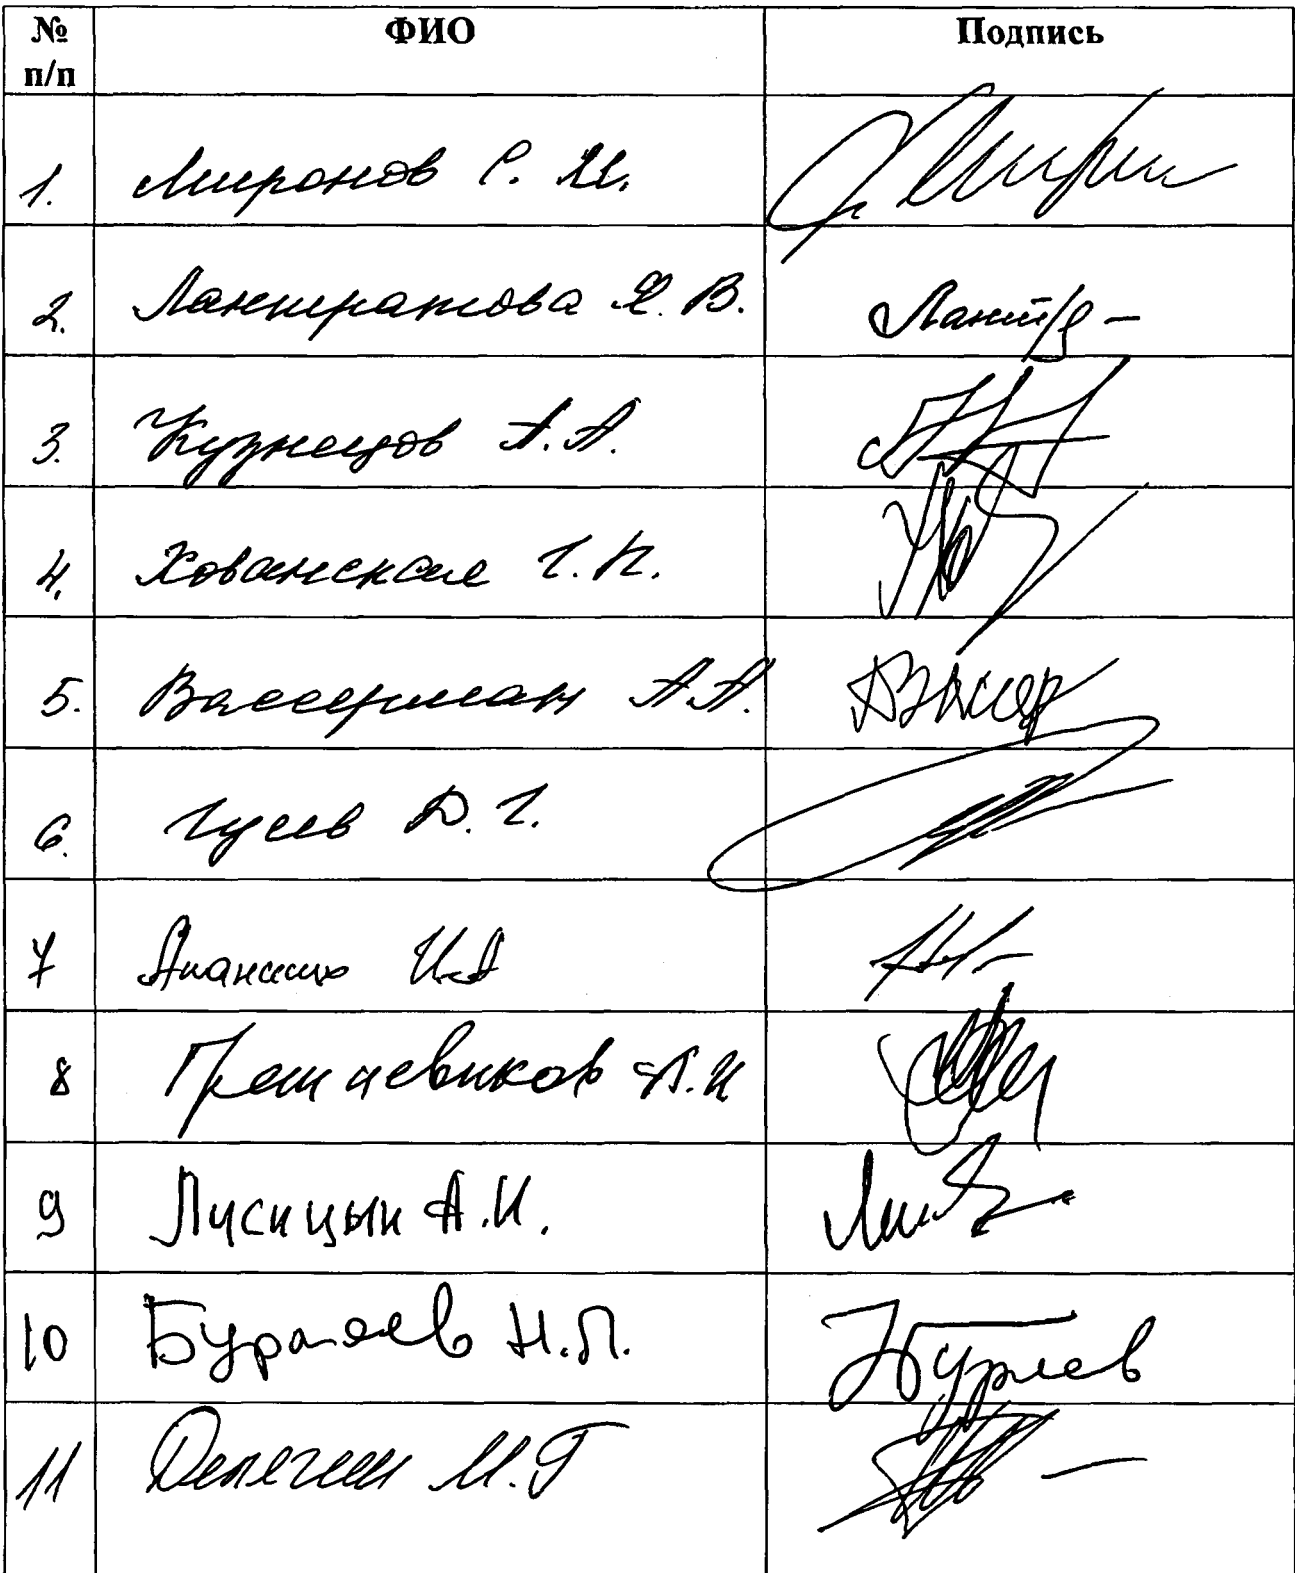 № п/п ФИО Подпись
1. Миронов С. М.
2. Лантратова Я. В.
3. Кузнецов А.А.
4. Хованская Г.П.
5. Вассерман А.А.
6. Гусев Д. Г.
7 Ананских И.А
8 Грешневиков А.Н
9 Лисицын А.И.
10 Бурляев Н.П. НБурляев
11 Делягин М.Г